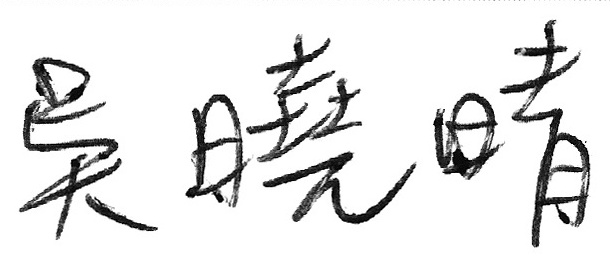 吳曉晴